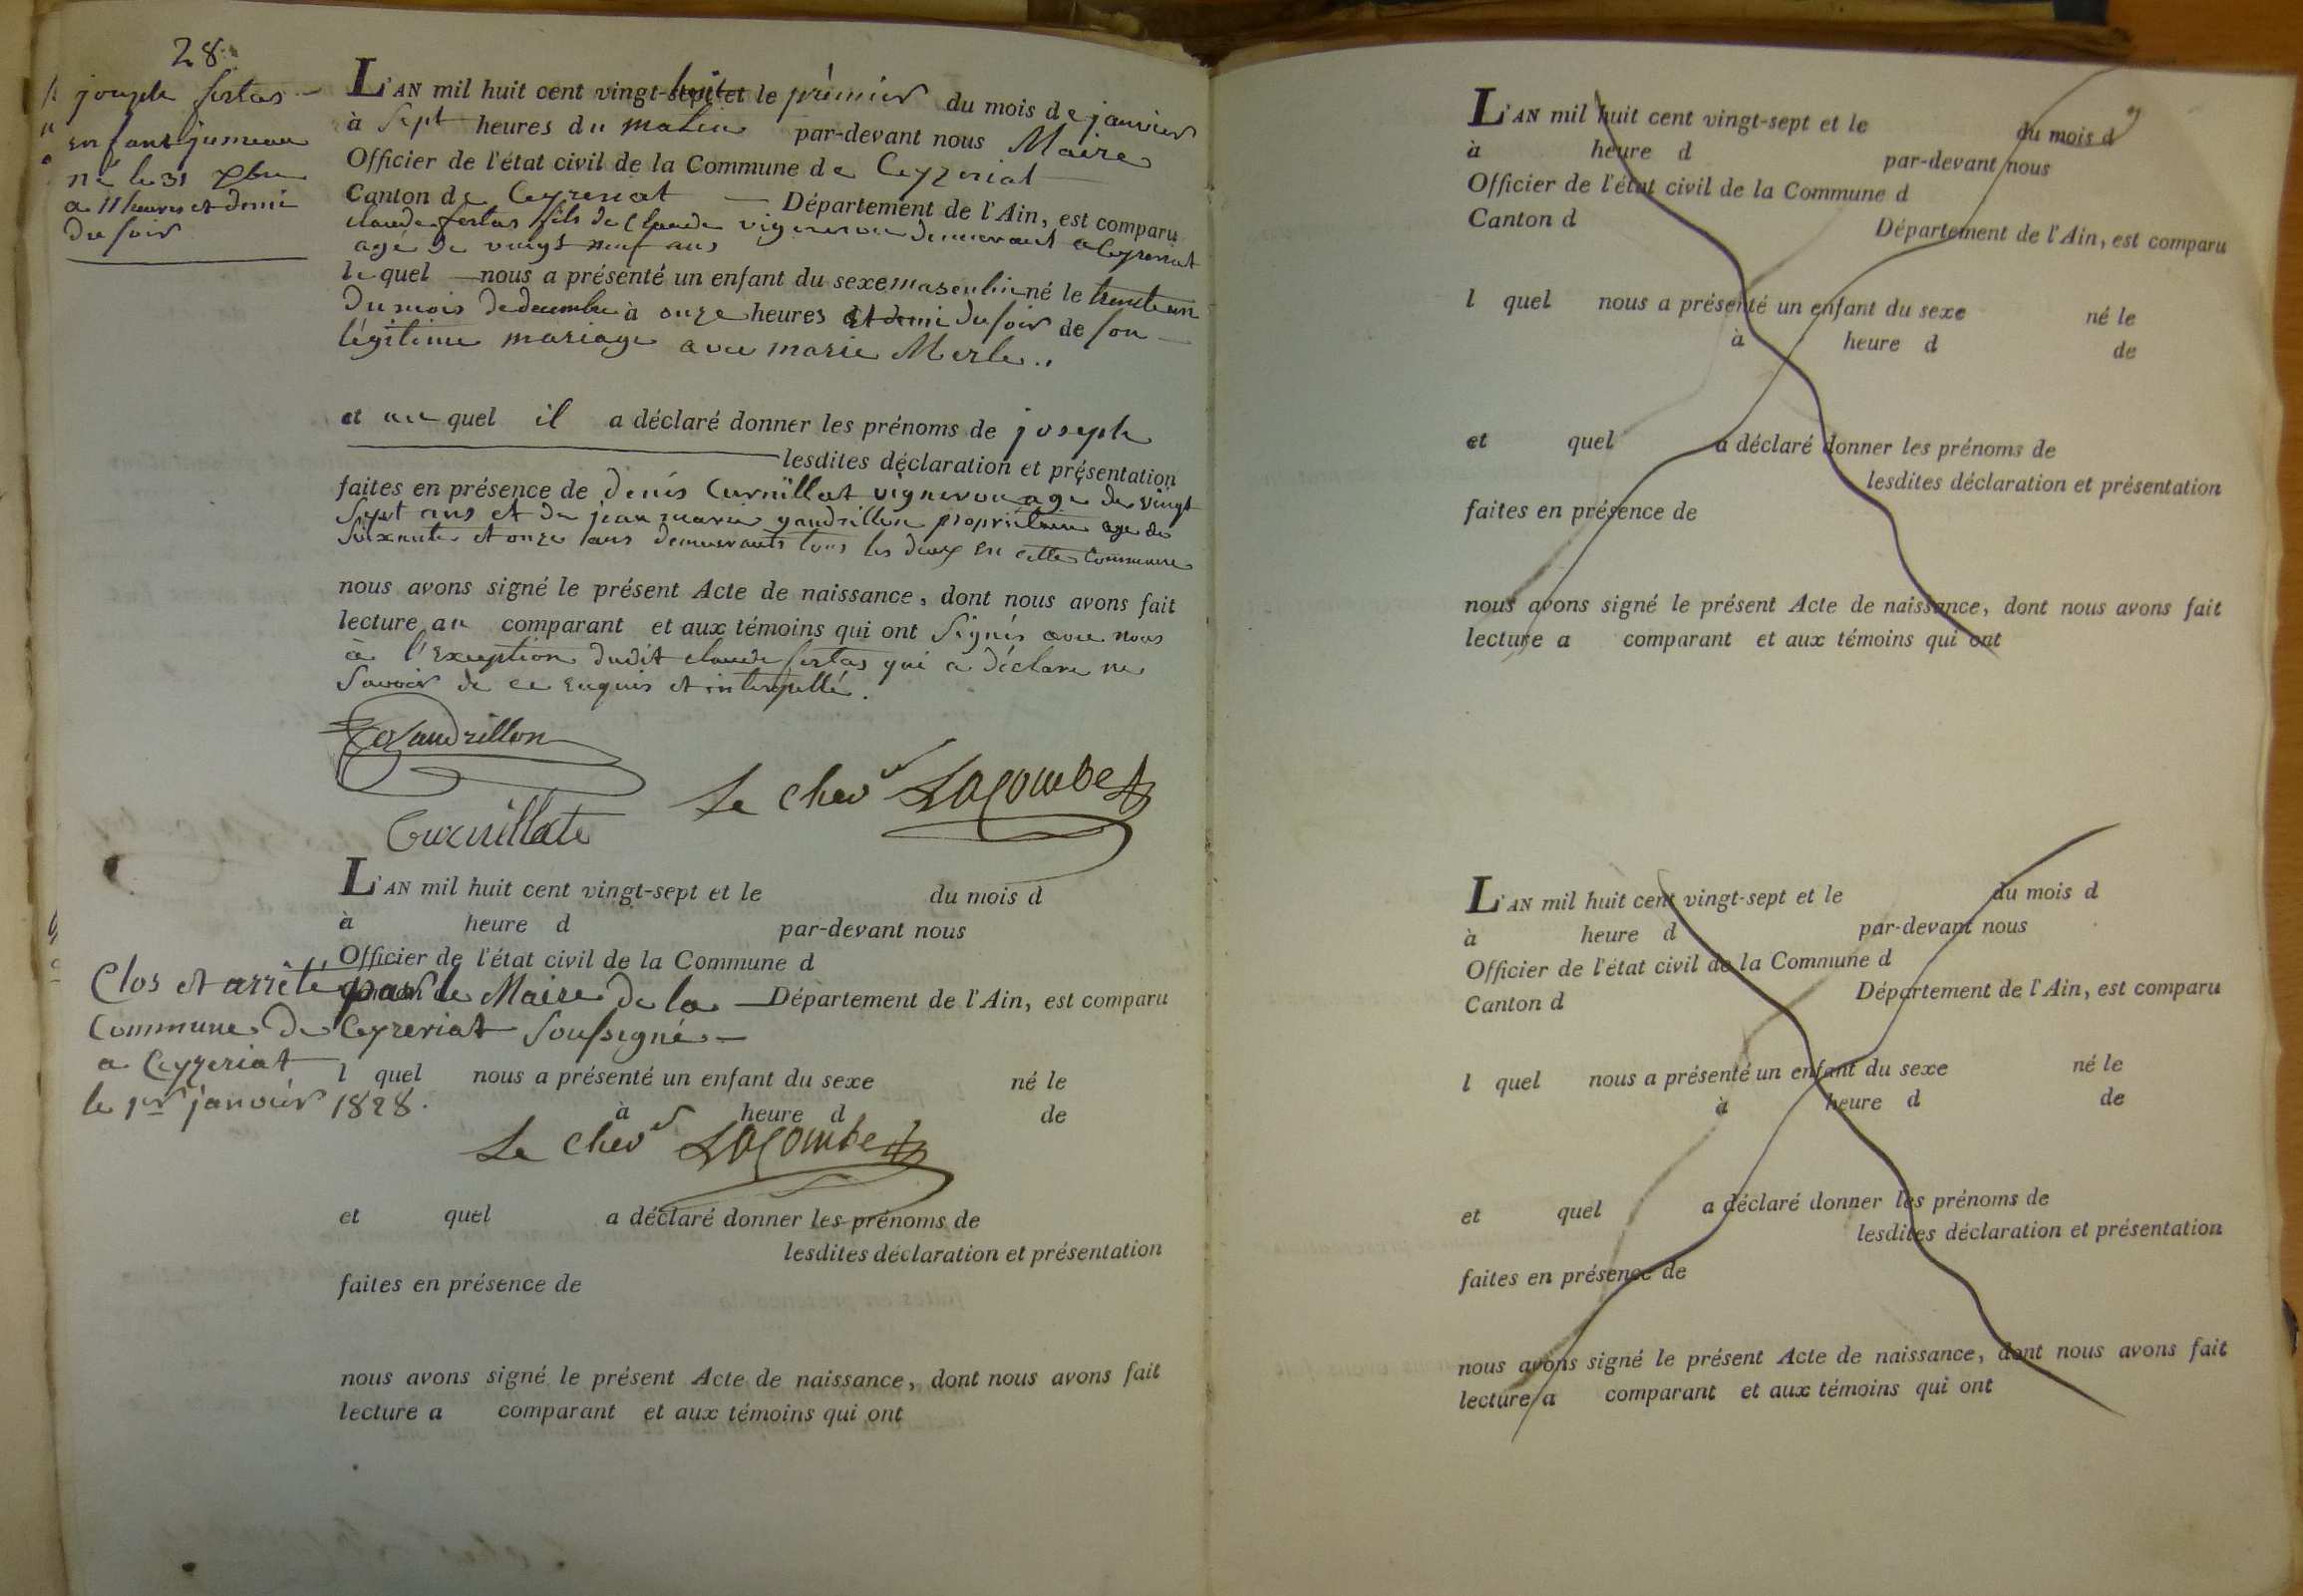 28
joseph fertas
enfant jumeau
né le 31 Xbre
a 11 heures et demi
du soir
L'AN mil huit cent vingt-huit et le premier du mois de janvier
à Sept heures du matin par-devant nous Maire
Officier de l'état civil de la Commune de Ceyzeriat
Canton de Ceyzeriat Département de l'Ain, est comparu
claude fertas fils de Claude vigneron demeurant a Ceyzeriat
age de vingt neuf ans
le quel nous a présenté un enfant du sexe masculin né le trente un
du mois de decembre à onze heures et demi du soir de son
légitime mariage avec marie Merle..
et au quel il a déclaré donner les prénoms de joseph
lesdites déclaration et présentation
faites en présence de denis Curnillat vigneron age de vingt
Sept ans et de jean marie gandrillon propriétaire age de
Soixante et onze ans demeurants tous les deux en cette Commune
nous avons signé le présent Acte de naissance, dont nous avons fait
lecture au comparant et aux témoins qui ont Signés avec nous
à l'Exception dudit claude fertas qui a déclaré ne
Savoir de ce enquis et interpellé.
Gandrillon
Le Chev Lacombe
Curnillate
L'AN mil huit cent vingt-sept et le du mois d
à heure d par-devant nous
Officier de l'état civil de la Commune d
Clos et arrêté par le Maire de la Département de l'Ain, est comparu
Commune de Ceyzeriat Soussigné
a Ceyzeriat
l quel nous a présenté un enfant du sexe né le
le 1er janvier 1828.
à heure d de
Le Chev Lacombe
et quel a déclaré donner les prénoms de
lesdites déclaration et présentation
faites en présence de
nous avons signé le présent Acte de naissance, dont nous avons fait
lecture a comparant et aux témoins qui ont
L'AN mil huit cent vingt-sept et le du mois d
à heure d par-devant nous
Officier de l'état civil de la Commune d
Canton d Département de l'Ain, est comparu
l quel nous a présenté un enfant du sexe né le
à heure d de
et quel a déclaré donner les prénoms de
lesdites déclaration et présentation
faites en présence de
nous avons signé le présent Acte de naissance, dont nous avons fait
lecture a comparant et aux témoins qui ont
L'AN mil huit cent vingt-sept et le du mois d
à heure d par-devant nous
Officier de l'état civil de la Commune d
Canton d Département de l'Ain, est comparu
l quel nous a présenté un enfant du sexe né le
à heure d de
et quel a déclaré donner les prénoms de
lesdites déclaration et présentation
faites en présence de
nous avons signé le présent Acte de naissance, dont nous avons fait
lecture a comparant et aux témoins qui ont